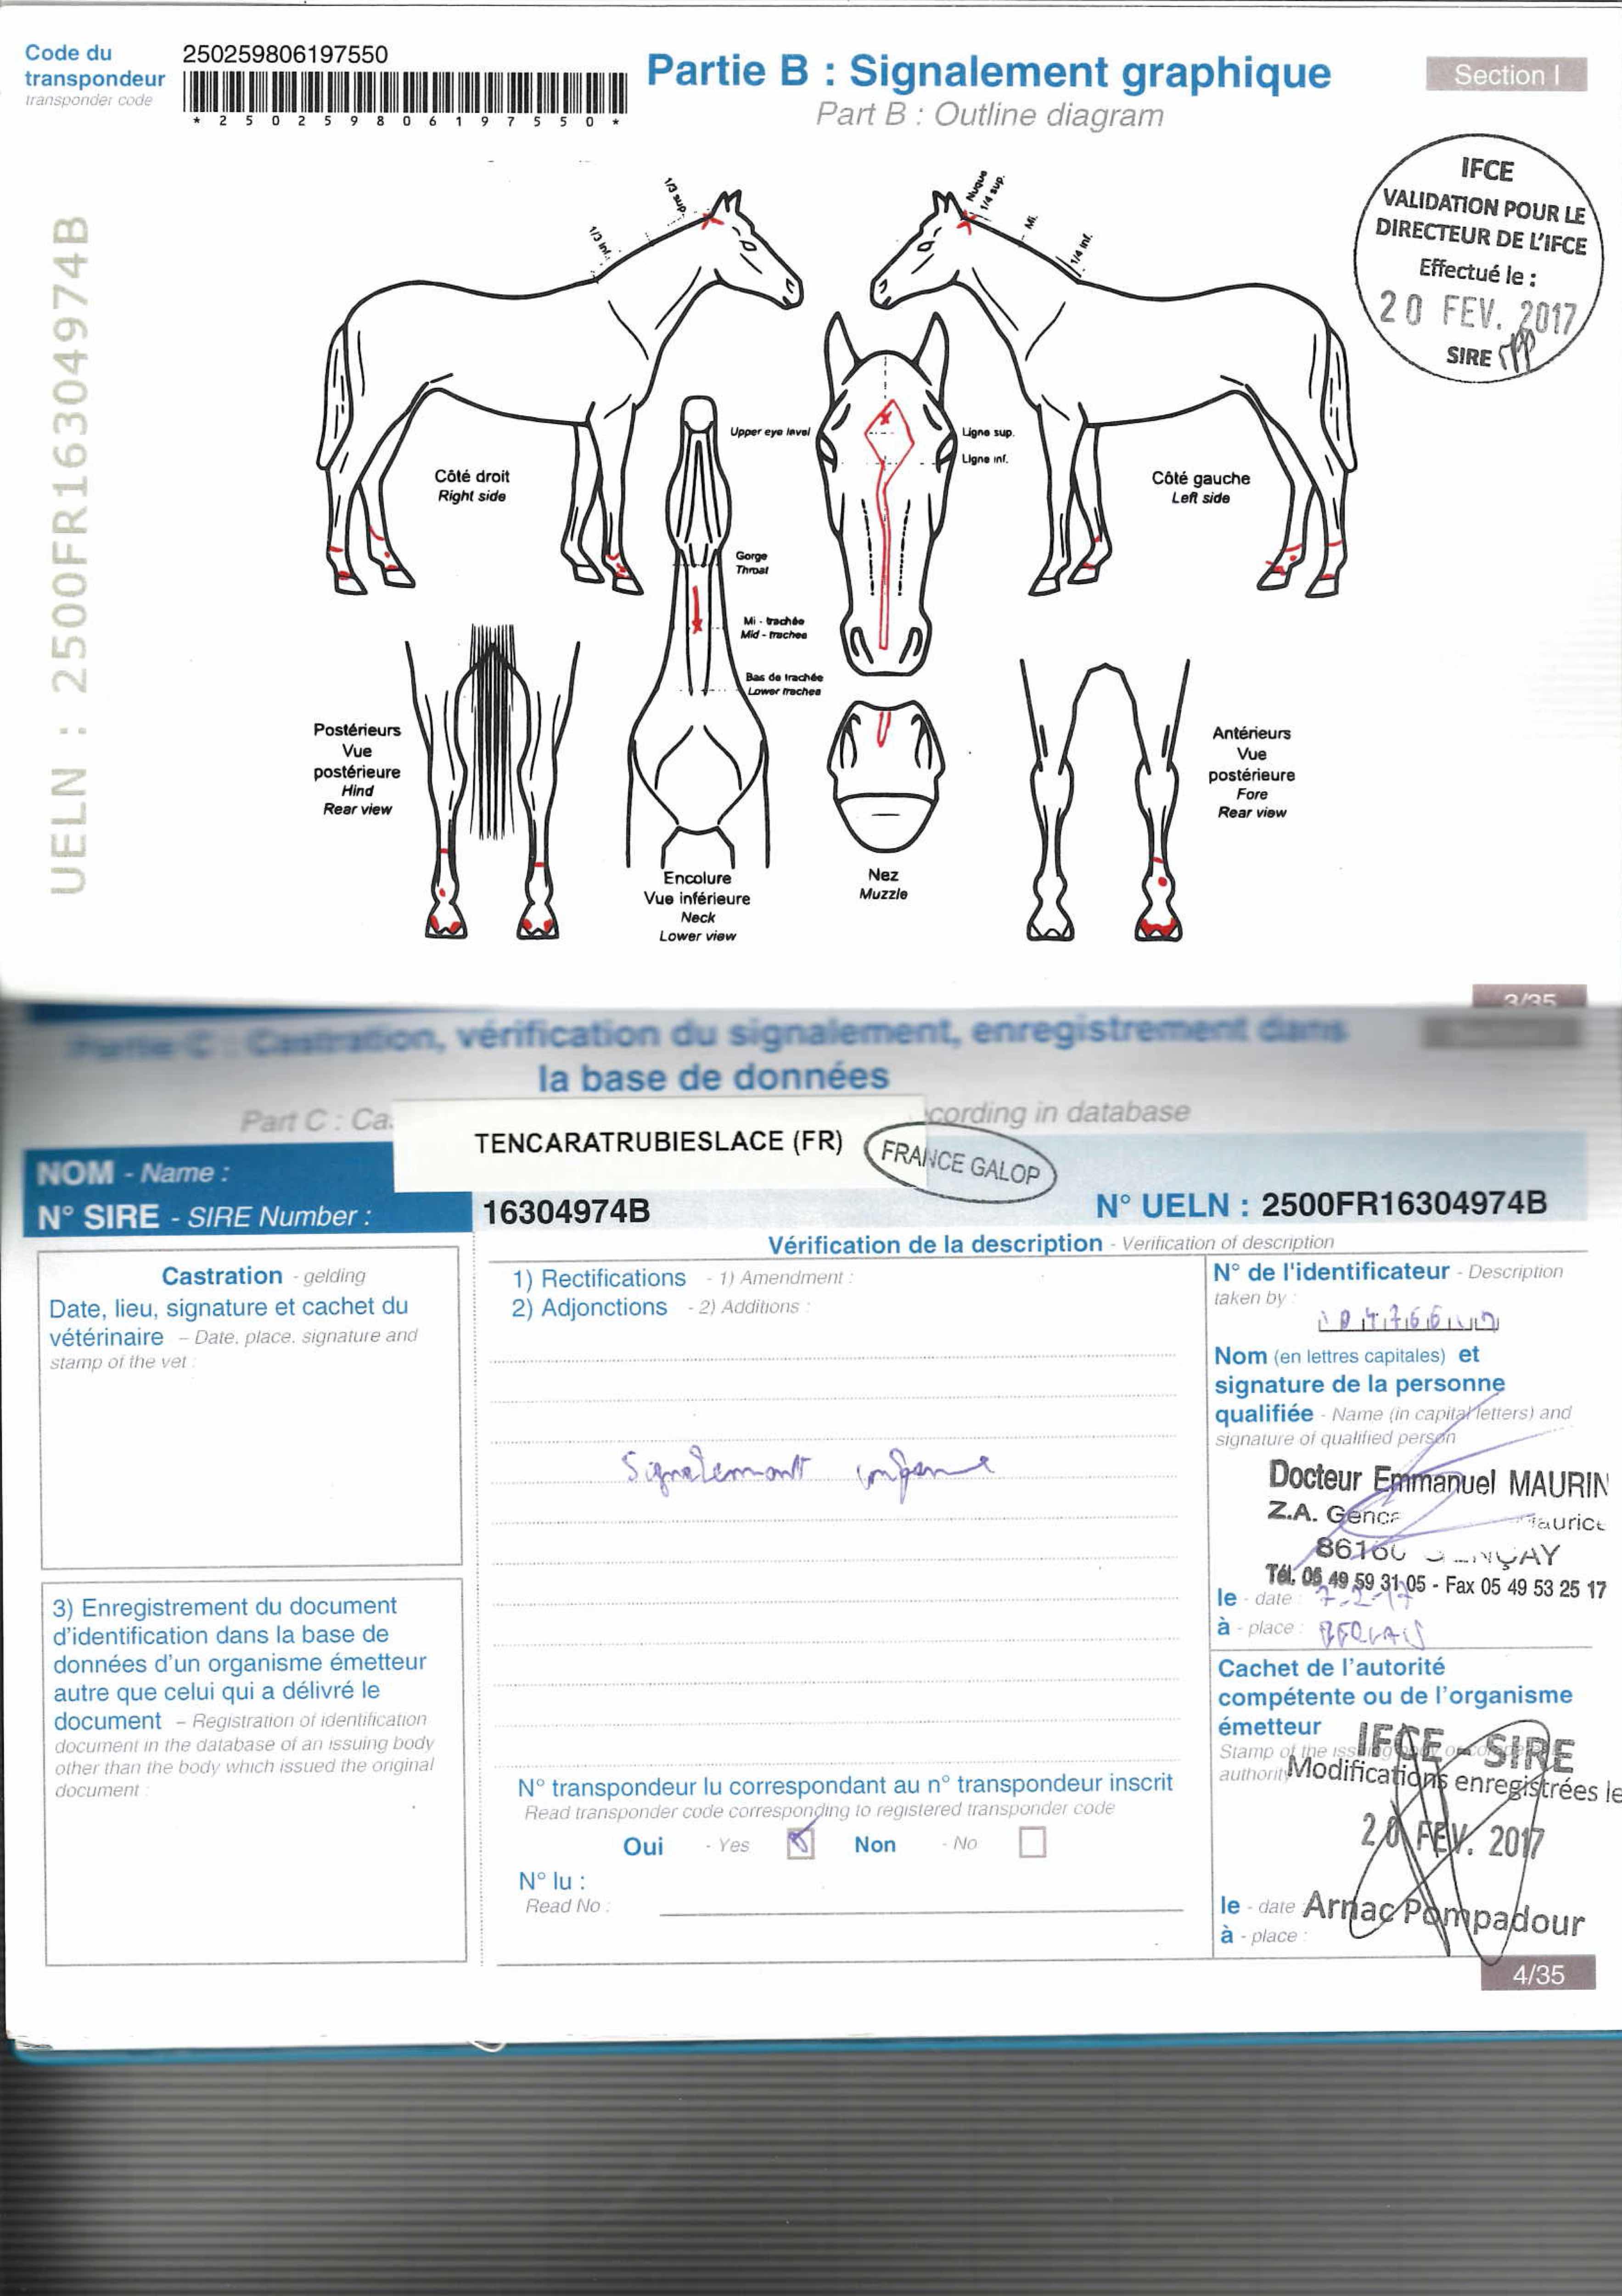 Code du
transpondeur
transponder code
250259806197550
* 2 5 0 2 5 9 8 0 6 1 9 7 5 5 0 *
Partie B : Signalement graphique
Part B : Outline diagram
Section I
IFCE
VALIDATION POUR LE
DIRECTEUR DE L'IFCE
Effectué le :
20 FEV. 2017
SIRE
UELN : 2500FR16304974B
1/3 sup.
1/3 inf.
Nuque
1/4 sup.
Mi.
1/4 inf.
Upper eye level
Ligne sup.
Ligne inf.
Côté droit
Right side
Côté gauche
Left side
Gorge
Throat
Mi - trachée
Mid - trachea
Bas de trachée
Lower trachea
Postérieurs
Vue
postérieure
Hind
Rear view
Antérieurs
Vue
postérieure
Fore
Rear view
Encolure
Vue inférieure
Neck
Lower view
Nez
Muzzle
3/35
Partie C : Castration, vérification du signalement, enregistrement dans
la base de données
Part C : Ca
cording in database
TENCARATRUBIESLACE (FR)
FRANCE GALOP
NOM - Name :
N° SIRE - SIRE Number :
16304974B
N° UELN : 2500FR16304974B
Vérification de la description - Verification of description
Castration - gelding
Date, lieu, signature et cachet du
vétérinaire - Date, place, signature and
stamp of the vet :
1) Rectifications - 1) Amendment :
2) Adjonctions - 2) Additions :
Signalement conforme
N° de l'identificateur - Description
taken by :
Nom (en lettres capitales) et
signature de la personne
qualifiée - Name (in capital letters) and
signature of qualified person
Docteur Emmanuel MAURIN
Z.A.
86160 GENÇAY
Tél. 05 49 59 31 05 - Fax 05 49 53 25 17
le - date : 7-2-17
à - place :
3) Enregistrement du document
d'identification dans la base de
données d'un organisme émetteur
autre que celui qui a délivré le
document - Registration of identification
document in the database of an issuing body
other than the body which issued the original
document :
N° transpondeur lu correspondant au n° transpondeur inscrit
Read transponder code corresponding to registered transponder code
Oui - Yes
Non - No
N° lu :
Read No :
Cachet de l'autorité
compétente ou de l'organisme
émetteur
Stamp of the issuing body or
authority
IFCE - SIRE
Modifications enregistrées le
20 FEV. 2017
le - date :
Arnac Pompadour
à - place :
4/35